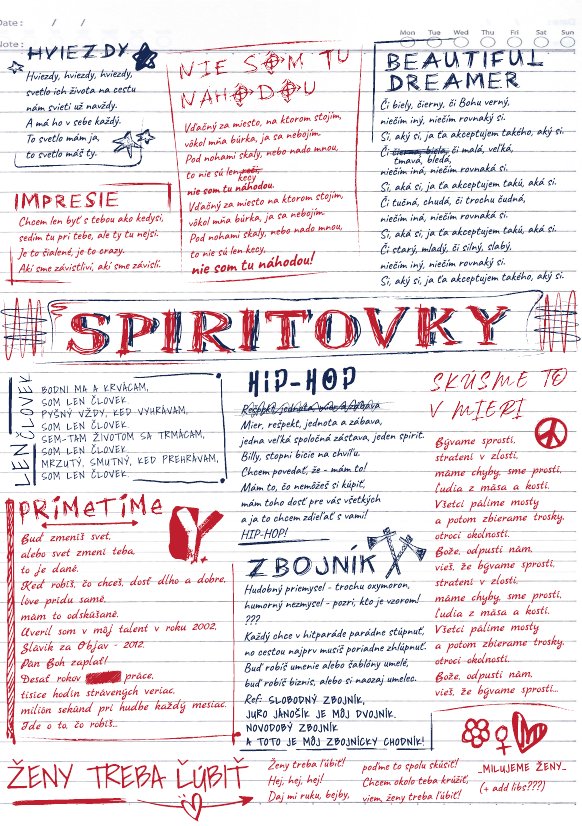 Date: / /
Note:
Mon Tue Wed Thu Fri Sat Sun
HVIEZDY
Hviezdy, hviezdy, hviezdy,
svetlo ich života na cestu
nám svieti už navždy.
A má ho v sebe každý.
To svetlo mám ja,
to svetlo máš ty.
IMPRESIE
Chcem len byť s tebou ako kedysi,
sedím tu pri tebe, ale ty tu nejsi.
Je to šialené, je to crazy.
Akí sme závistliví, akí sme závislí.
NIE SOM TU
NÁHODOU
Vďačný za miesto, na ktorom stojím,
vôkol mňa búrka, ja sa nebojím.
Pod nohami skaly, nebo nado mnou,
to nie sú len reči,
kecy
nie som tu náhodou.
Vďačný za miesto na ktorom stojím,
vôkol mňa búrka, ja sa nebojím.
Pod nohami skaly, nebo nado mnou,
to nie sú len kecy,
nie som tu náhodou!
BEAUTIFUL
DREAMER
Či biely, čierny, či Bohu verný,
niečím iný, niečím rovnaký si.
Si, aký si, ja ťa akceptujem takého, aký si.
Či čierna, biela, či malá, veľká,
tmavá, bledá,
niečím iná, niečím rovnaká si.
Si, aká si, ja ťa akceptujem takú, aká si.
Či tučná, chudá, či trochu čudná,
niečím iná, niečím rovnaká si.
Si, aká si, ja ťa akceptujem takú, aká si.
Či starý, mladý, či silný, slabý,
niečím iný, niečím rovnaký si.
Si, aký si, ja ťa akceptujem takého, aký si.
SPIRITOVKY
LEN ČLOVEK
BODNI MA A KRVÁCAM,
SOM LEN ČLOVEK.
PYŠNÝ VŽDY, KEĎ VYHRÁVAM,
SOM LEN ČLOVEK.
SEM-TAM ŽIVOTOM SA TRMÁCAM,
SOM LEN ČLOVEK.
MRZUTÝ, SMUTNÝ, KEĎ PREHRÁVAM,
SOM LEN ČLOVEK.
PRIMETIME
Buď zmeníš svet,
alebo svet zmení teba,
to je dané.
Keď robíš, čo chceš, dosť dlho a dobre,
love prídu samé,
mám to odskúšané.
Uveril som v môj talent v roku 2002,
Slávik za Objav - 2012.
Pán Boh zaplať!
Desať rokov práce,
tisíce hodín strávených veriac,
milión sekúnd pri hudbe každý mesiac.
Ide o to, čo robíš..
HIP-HOP
Rešpekt, jednota, mier, zábava
Mier, rešpekt, jednota a zábava,
jedna veľká spoločná zástava, jeden spirit.
Billy, stopni bicie na chvíľu.
Chcem povedať, že - mám to!
Mám to, čo nemôžeš si kúpiť,
mám toho dosť pre vás všetkých
a ja to chcem zdieľať s vami!
HIP-HOP!
ZBOJNÍK
Hudobný priemysel - trochu oxymoron,
humorný nezmysel - pozri, kto je vzorom!
???
Každý chce v hitparáde parádne stúpnuť,
no cestou najprv musíš poriadne zhlúpnuť.
Buď robíš umenie alebo šablóny umelé,
buď robíš biznis, alebo si naozaj umelec.
Ref: SLOBODNÝ ZBOJNÍK,
JURO JÁNOŠÍK JE MÔJ DVOJNÍK.
NOVODOBÝ ZBOJNÍK
A TOTO JE MÔJ ZBOJNÍCKY CHODNÍK!
SKÚSME TO
V MIERI
Bývame sprostí,
stratení v zlosti,
máme chyby, sme prostí,
ľudia z mäsa a kostí.
Všetci pálime mosty
a potom zbierame trosky,
otroci okolností.
Bože, odpusti nám,
vieš, že bývame sprostí,
stratení v zlosti,
máme chyby, sme prostí,
ľudia z mäsa a kostí.
Všetci pálime mosty
a potom zbierame trosky,
otroci okolností.
Bože, odpusti nám,
vieš, že bývame sprostí...
ŽENY TREBA ĽÚBIŤ
Ženy treba ľúbiť!
Hej, hej, hej!
Daj mi ruku, bejby,
poďme to spolu skúsiť!
Chcem okolo teba krúžiť,
viem, ženy treba ľúbiť!
_MILUJEME ŽENY_
(+ add libs???)